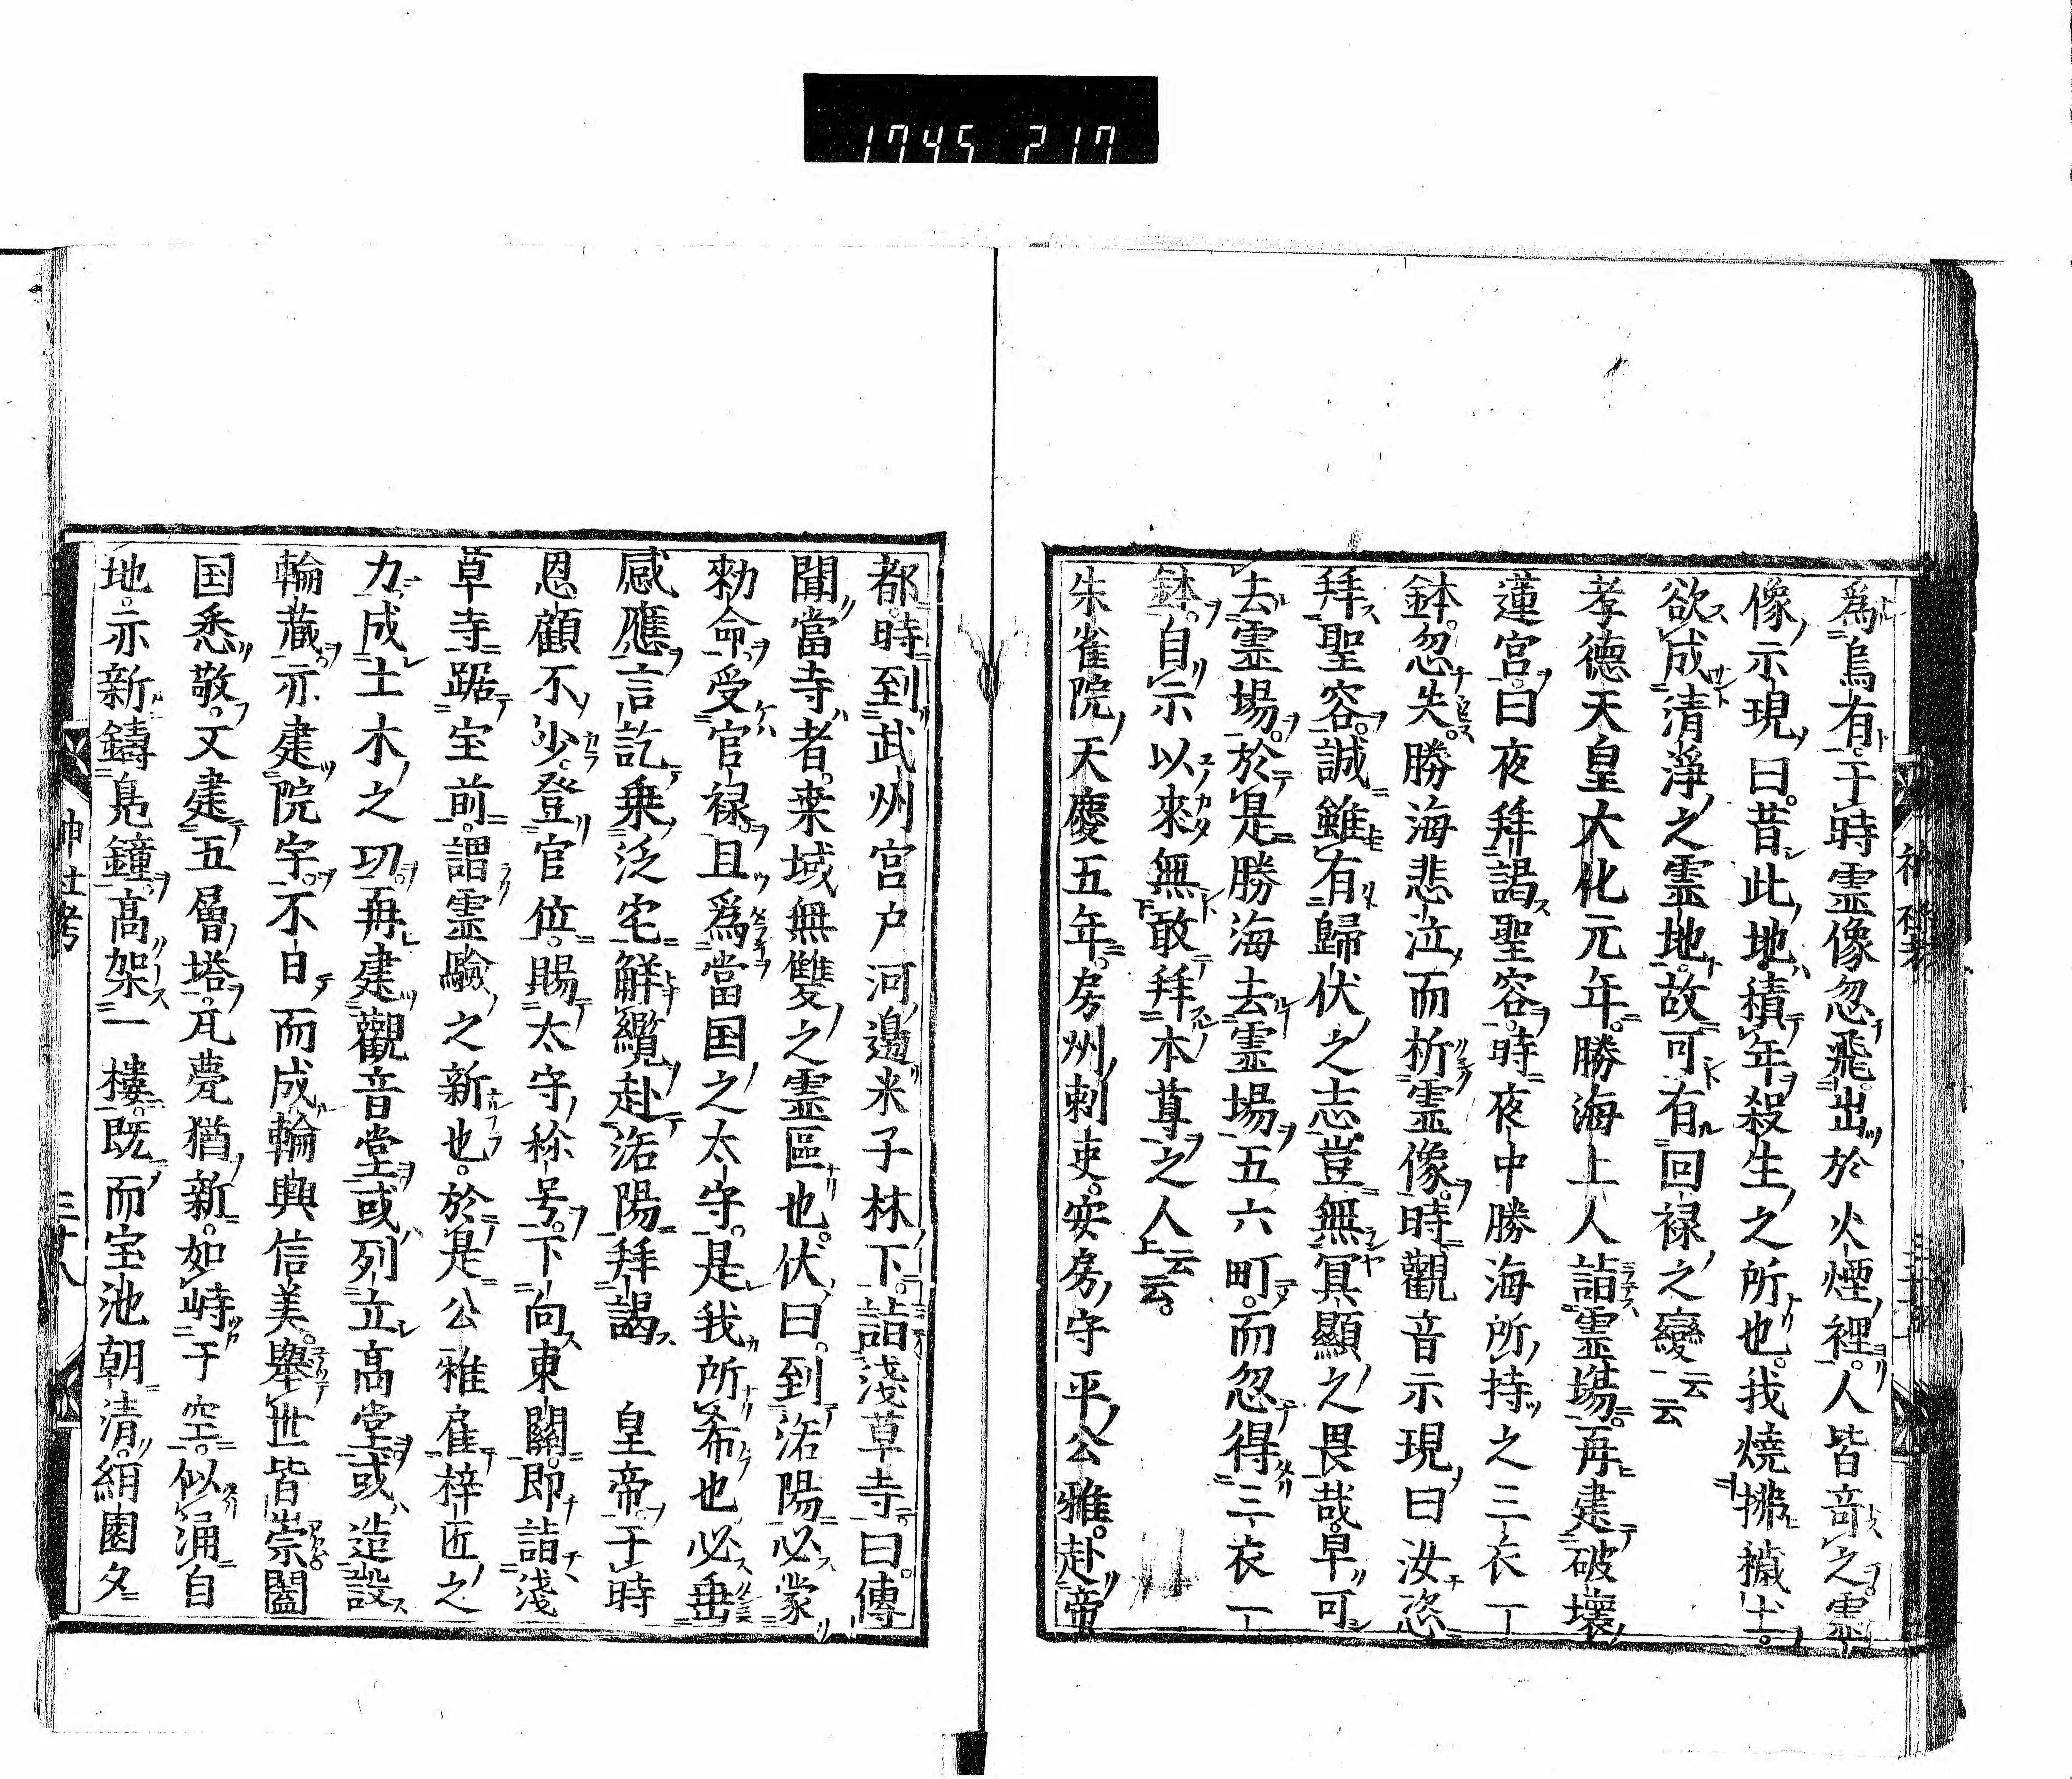 1745 217
為烏有于時霊像忽飛出於火煙裡人皆竒之霊
像示現曰昔此地積年殺生之所也我燒拂穢土
欲成清淨之霊地故可有回禄之變云云
孝德天皇大化元年勝海上人詣霊場再建破壞
蓮宮曰夜拜謁聖容時夜中勝海所持之三衣一
鉢忽失勝海悲泣而祈霊像時觀音示現曰汝恣
拜聖容誠雖有歸伏之志豈無冥顯之畏哉早可
去霊場於是勝海去霊場五六町而忽得三衣一
鉢自示以來無敢拜本尊之人云云
朱雀院天慶五年房州刺吏安房守平公雅赴帝
都時到武州宮戸河邊米子林下詣淺草寺曰傳
聞當寺者桒域無雙之霊區也伏曰到洛陽必蒙
勅命受官禄且為當国之太守是我所希也必垂
感應言訖乗泛宅觧纜赴洛陽拜謁 皇帝于時
恩顧不少登官位賜太守称号下向東關即詣淺
草寺踞宝前謂霊驗之新也於是公雅雇梓匠之
力成土木之功再建觀音堂或列立高堂或造設
輪藏亦建院宇不日而成輪輿信美舉世皆崇闔
国悉敬又建五層塔瓦甍猶新如峙于空似涌自
地亦新鑄鳬鐘高架一樓既而宝池朝清絹園夕
神社考
三廿八